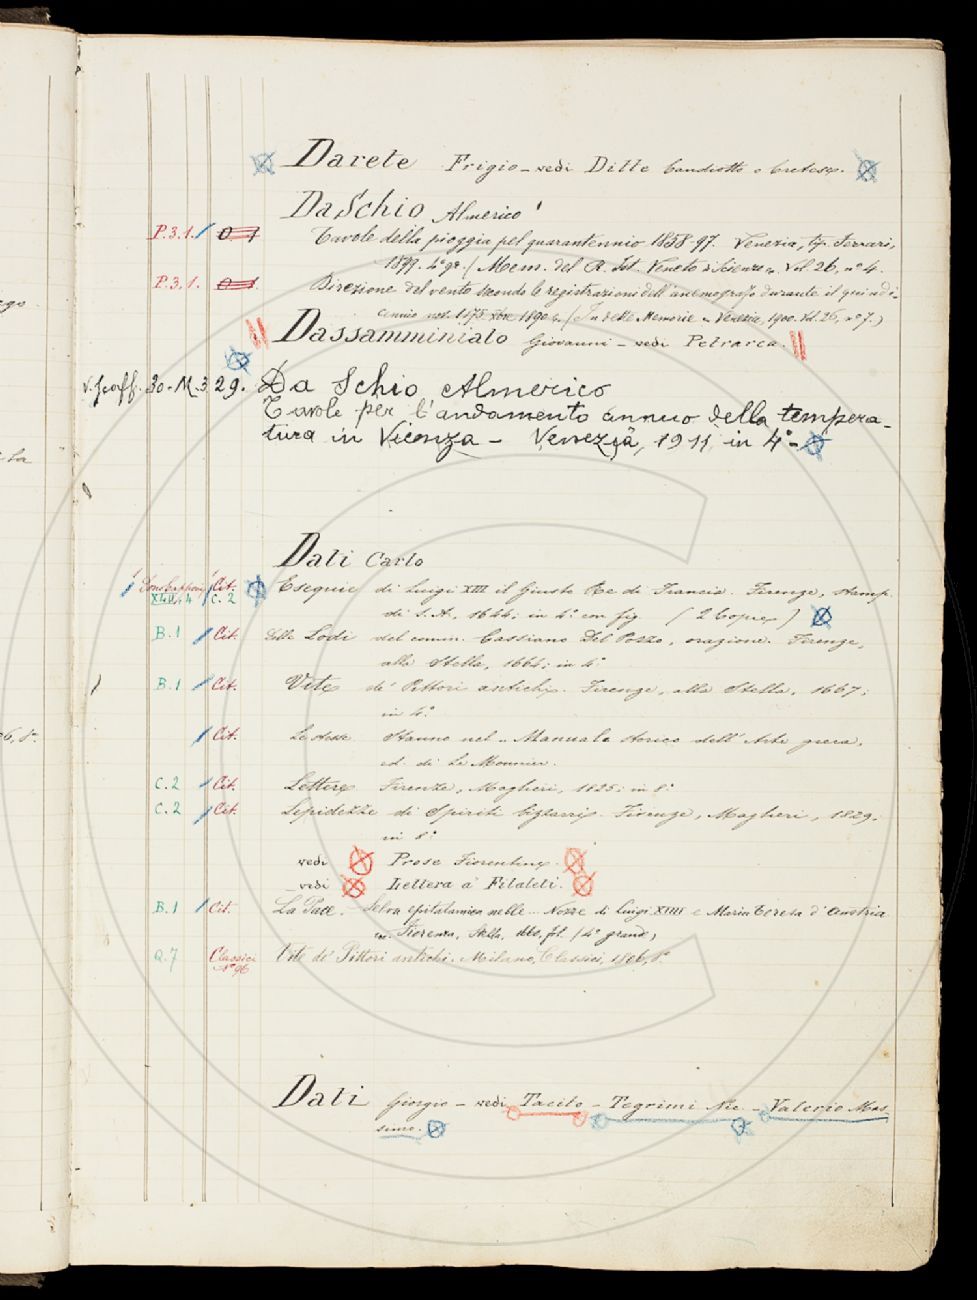 Darete Frigio - vedi Ditte Candiotto o Cretese.
Da Schio Almerico
P.3.1. Tavole della pioggia pel quarantennio 1858-97. Venezia, tip. Ferrari,
1899. 4° gr. (Mem. del R. Ist. Veneto di Scienze Vol 26, n° 4.
P.3.1. Direzione del vento secondo le registrazioni dell'anemografo durante il quindi-
cennio 1890 (In dette Memorie Venezia, 1900. Vol. 26, n° 7.)
Dassamminiato Giovanni - vedi Petrarca.
30. M. 3 29. Da Schio Almerico
Tavole per l'andamento annuo della tempera-
tura in Vicenza - Venezia, 1911, in 4°-
Dati Carlo
Cit. Esequie di Luigi XIII il Giusto Re di Francia. Firenze, Stamp.
XLII. 4 C. 2 di S. A., 1644; in 4° con fig. (2 Copie)
B. 1 Cit. Delle Lodi del comm. Cassiano Del Pozzo, orazione. Firenze,
alla Stella, 1664; in 4°
B. 1 Cit. Vite de' Pittori antichi. Firenze, alla Stella, 1667;
in 4°
Cit. Le stesse Stanno nel Manuale storico dell'Arte greca,
ed. di Le Monnier.
C. 2 Cit. Lettere Firenze, Magheri, 1825; in 8°
C. 2 Cit. Lepidezze di Spiriti bizzarri. Firenze, Magheri, 1829;
in 8°
vedi Prose Fiorentine.
vedi Lettera a' Filaleti.
B. 1 Cit. La Pace. Selva epitalamica nelle Nozze di Luigi XIIII e Maria Teresa d'Austria
Fiorenza, Stella, (4° grande)
Q. 7 Classici N° 96 Vite de' Pittori antichi. Milano, Classici, 1806, 8°
Dati Giorgio - vedi Tacito - Tegrimi Nic. - Valerio Mas
simo.